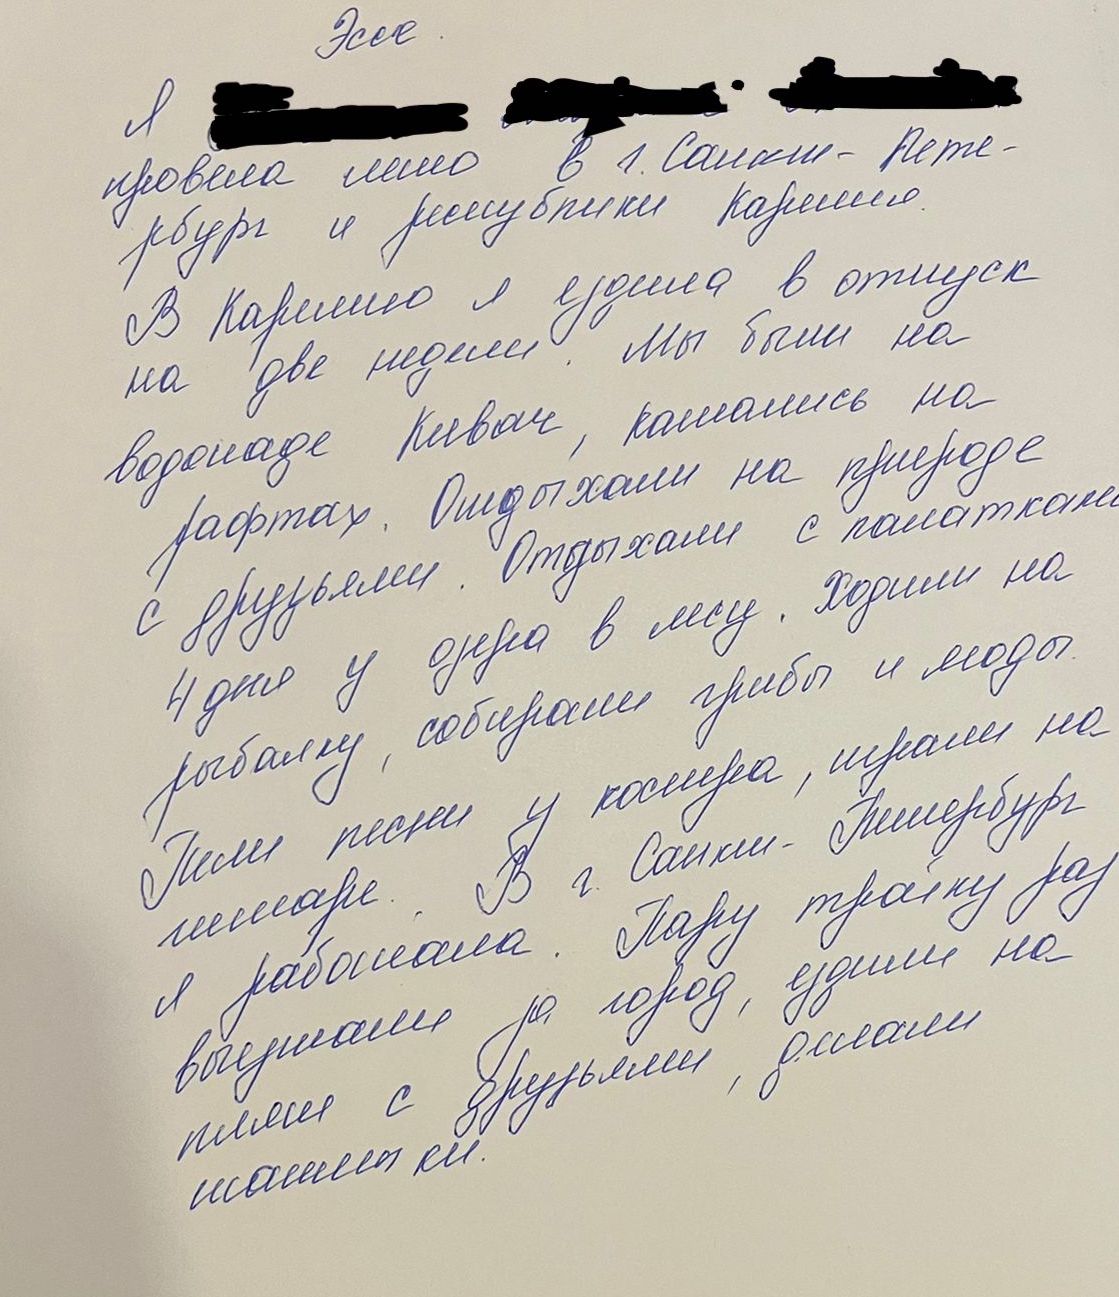 Эссе.
Я
провела лето в г. Санкт-Пете-
рбург и республики Карелия.
В Карелию я ездила в отпуск
на две недели. Мы были на
водопаде Кивач, катались на
рафтах. Отдыхали на природе
с друзьями. Отдыхали с палатками
4 дня у озера в лесу. Ходили на
рыбалку, собирали грибы и ягоды.
Пели песни у костра, играли на
гитаре. В г. Санкт-Петербург
я работала. Пару тройку раз
выезжали за город, ездили на
пляж с друзьями, делали
шашлыки.